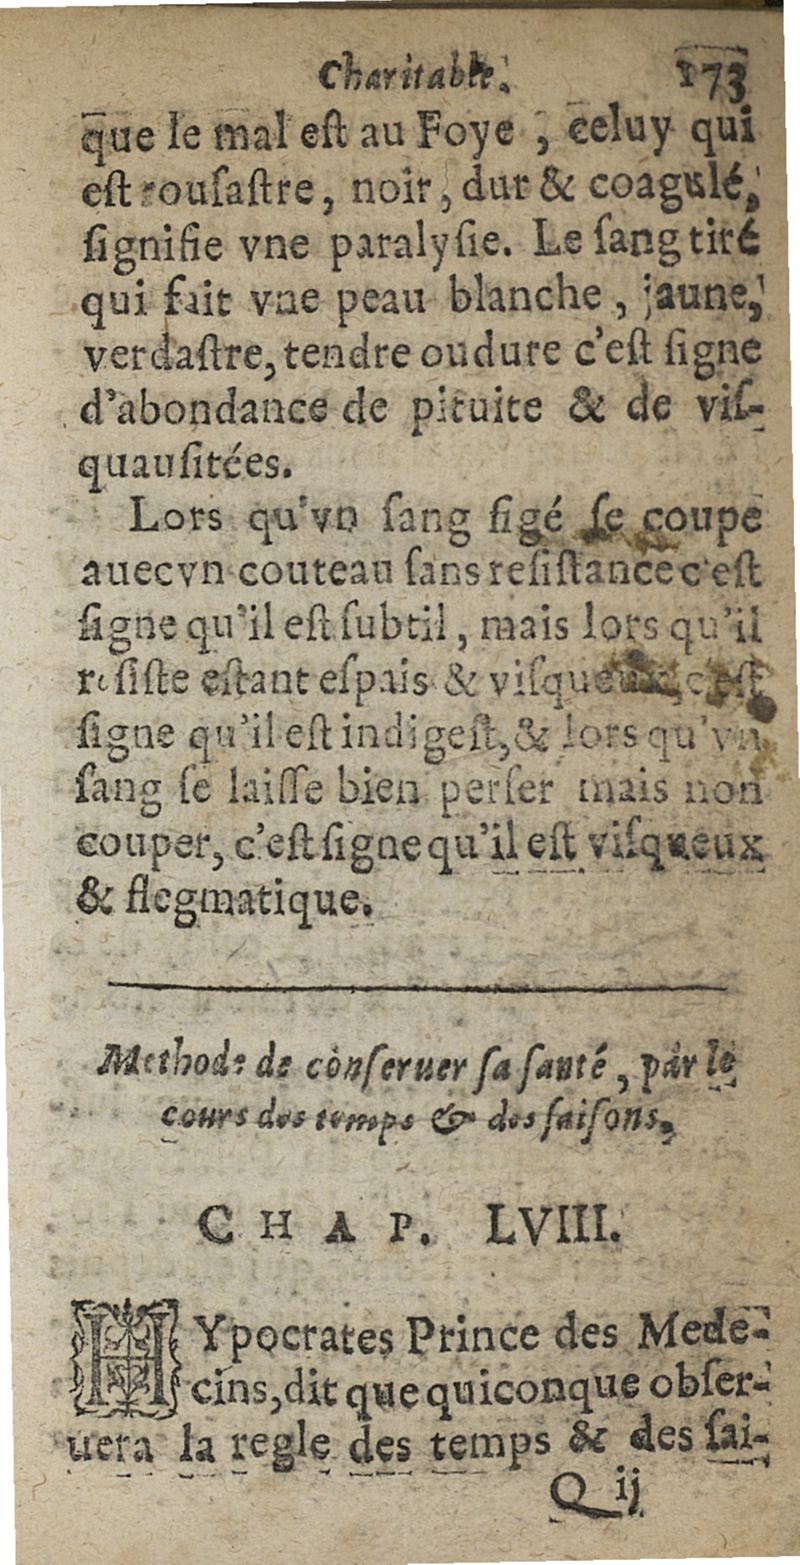 Charitable. 173
que le mal eſt au Foye , celuy qui
eſt rouſaſtre, noir, dur & coagulé,
ſignifie vne paralyſie. Le ſang tiré
qui fait vne peau blanche , jaune,
verdaſtre, tendre ou dure c'eſt ſigne
d'abondance de pituite & de viſ-
quauſitées.
Lors qu'vn ſang figé ſe coupe
auec vn couteau ſans reſiſtance c'eſt
ſigne qu'il eſt ſubtil, mais lors qu'il
reſiſte eſtant eſpais & viſqueux, c'eſt
ſigne qu'il eſt indigeſt, & lors qu'vn
ſang ſe laiſſe bien perſer mais non
couper, c'eſt ſigne qu'il eſt viſqueux
& flegmatique.
Methode de conſeruer ſa ſanté, par le
cours des temps & des ſaiſons.
CHAP. LVIII.
HYpocrates Prince des Mede-
cins, dit que quiconque obſer-
uera la regle des temps & des ſai-
Q ij